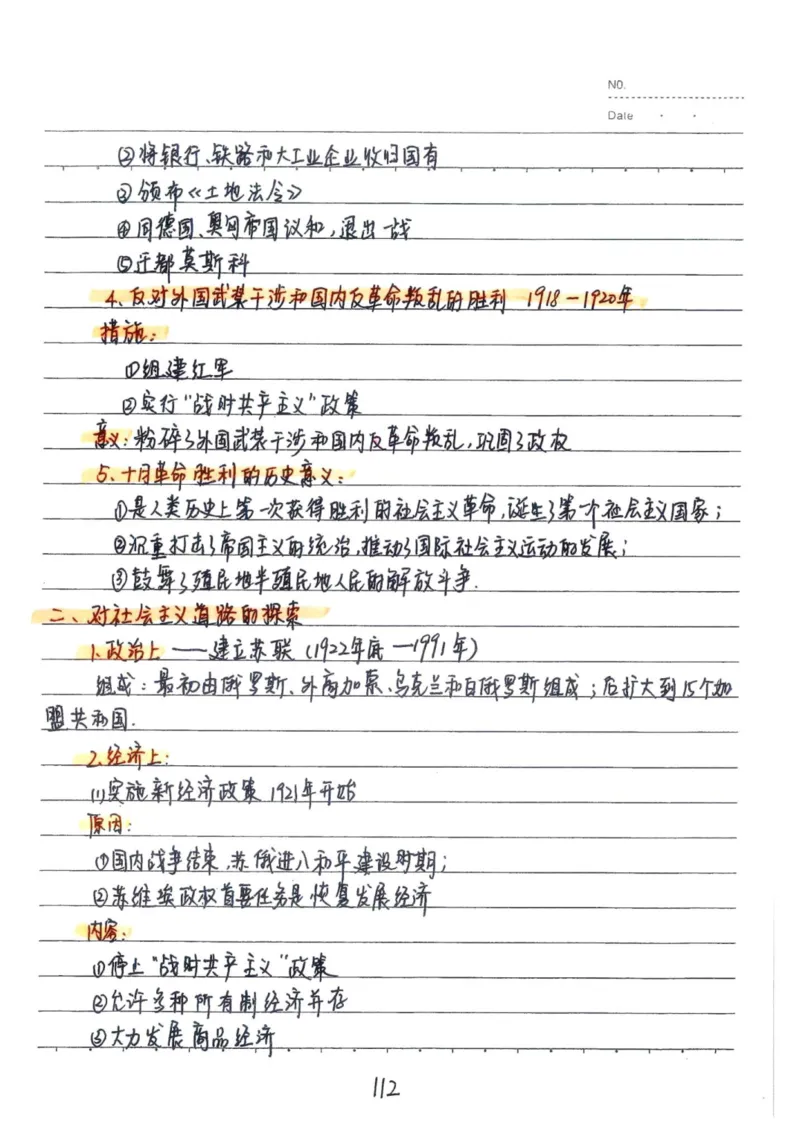 NO.
Date
②将银行、铁路和大工业企业收归国有
③颁布《土地法令》
④同德国、奥匈帝国议和,退出一战
⑤迁都莫斯科
4、反对外国武装干涉和国内反革命叛乱的胜利 1918—1920年
措施:
①组建红军
②实行"战时共产主义"政策
意义:粉碎了外国武装干涉和国内反革命叛乱,巩固了政权
5、十月革命胜利的历史意义:
①是人类历史上第一次获得胜利的社会主义革命,诞生了第一个社会主义国家;
②沉重打击了帝国主义的统治,推动了国际社会主义运动的发展;
③鼓舞了殖民地半殖民地人民的解放斗争.
二、对社会主义道路的探索
1.政治上——建立苏联(1922年底—1991年)
组成:最初由俄罗斯、外高加索、乌克兰和白俄罗斯组成;后扩大到15个加
盟共和国.
2.经济上:
(1)实施新经济政策 1921年开始
原因:
①国内战争结束,苏俄进入和平建设时期;
②苏维埃政权首要任务是恢复发展经济
内容:
①停止"战时共产主义"政策
②允许多种所有制经济并存
③大力发展商品经济
112